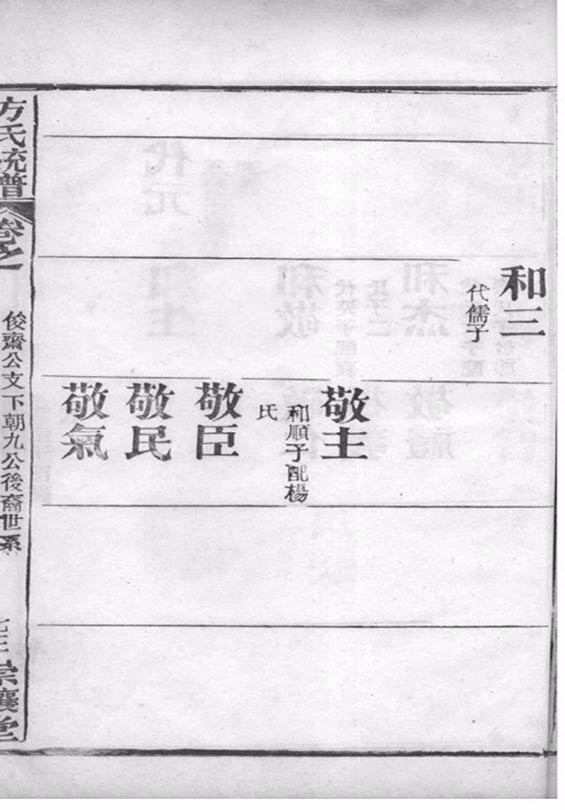 和三
代儒子
敬主
和順子配楊
氏
敬臣
敬民
敬氣
方氏統譜
卷之
俊齋公支下朝九公後裔世系
崇讓堂